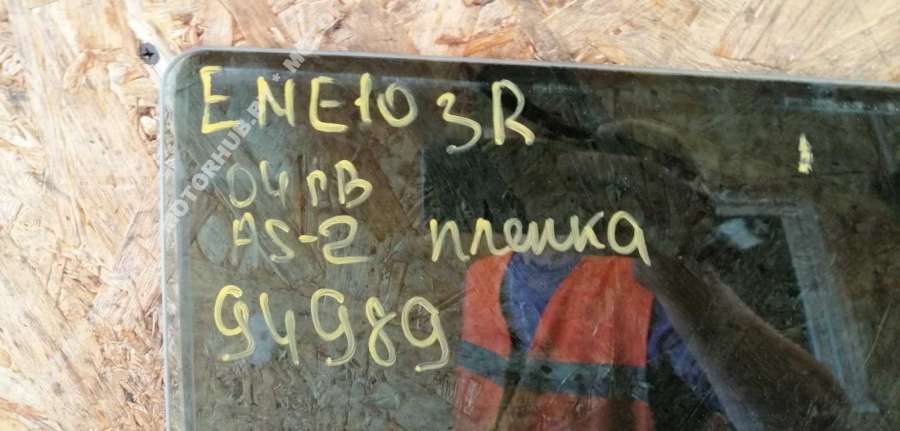 ENE10 3R
04 гв
AS-2 пленка
94989
MOTORHUB.BY * M